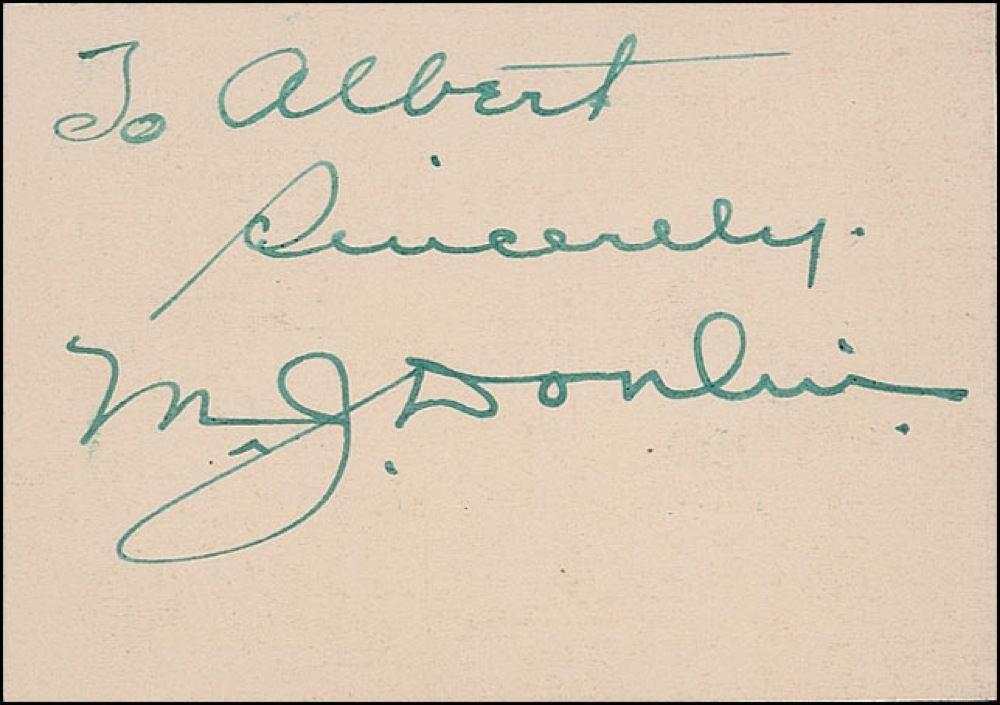 To Albert
Sincerely.
M. J. Donlin.